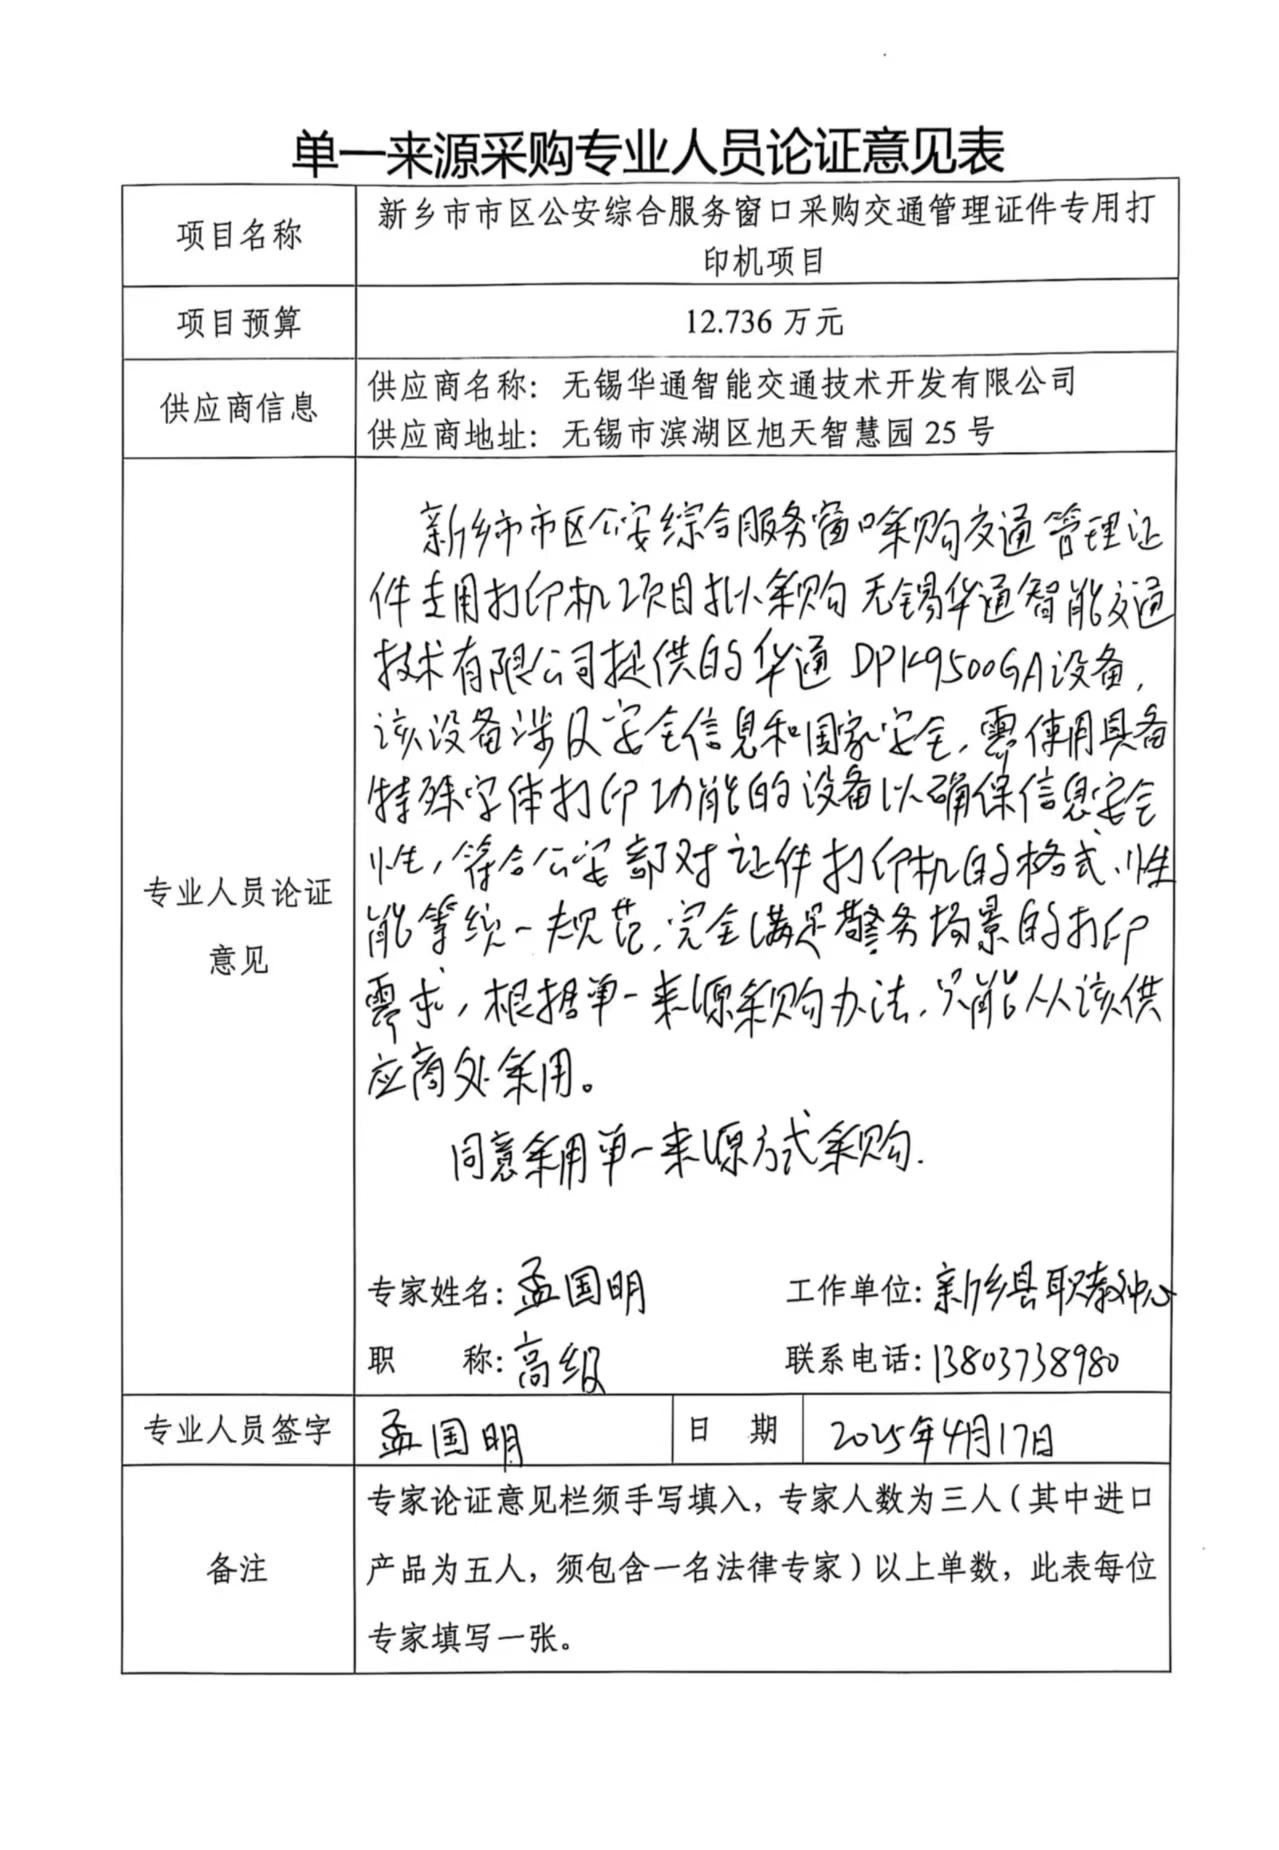 单一来源采购专业人员论证意见表
项目名称
新乡市市区公安综合服务窗口采购交通管理证件专用打
印机项目
项目预算
12.736 万元
供应商信息
供应商名称：无锡华通智能交通技术开发有限公司
供应商地址：无锡市滨湖区旭天智慧园 25 号
专业人员论证
意见
新乡市市区公安综合服务窗口采购交通管理证
件专用打印机项目拟采购无锡华通智能交通
技术有限公司提供的华通 DPK9500GA设备，
该设备涉及安全信息和国家安全，需使用具备
特殊字体打印功能的设备以确保信息安全
性，符合公安部对证件打印机的格式、性
能等统一规范，完全满足警务场景的打印
需求，根据单一来源采购办法，只能从该供
应商处采用。
同意采用单一来源方式采购.
专家姓名：孟国明 工作单位：新乡县职教中心
职 称：高级 联系电话：13803738980
专业人员签字 孟国明 日 期 2025年4月17日
备注
专家论证意见栏须手写填入，专家人数为三人（其中进口
产品为五人，须包含一名法律专家）以上单数，此表每位
专家填写一张。